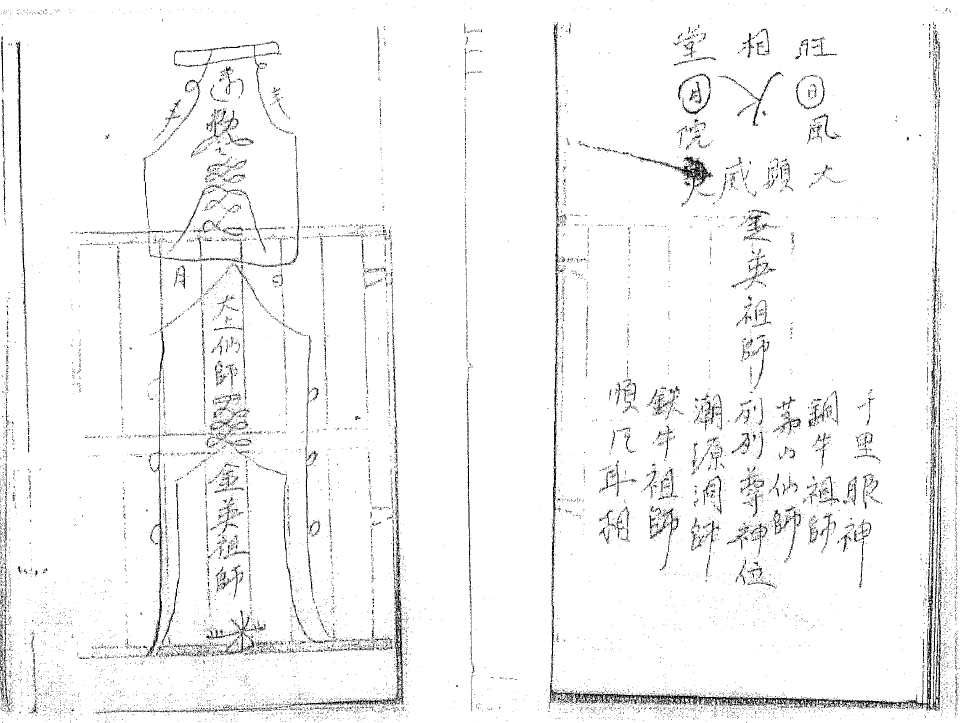 旺相堂
日火月
風院
大顕威灵
金英祖師
列列尊神位
千里眼神
銅牛祖師
茅山仙師
潮源洞師
鉄牛祖師
順風耳相
敕
月
日
太上仙師
金英祖師